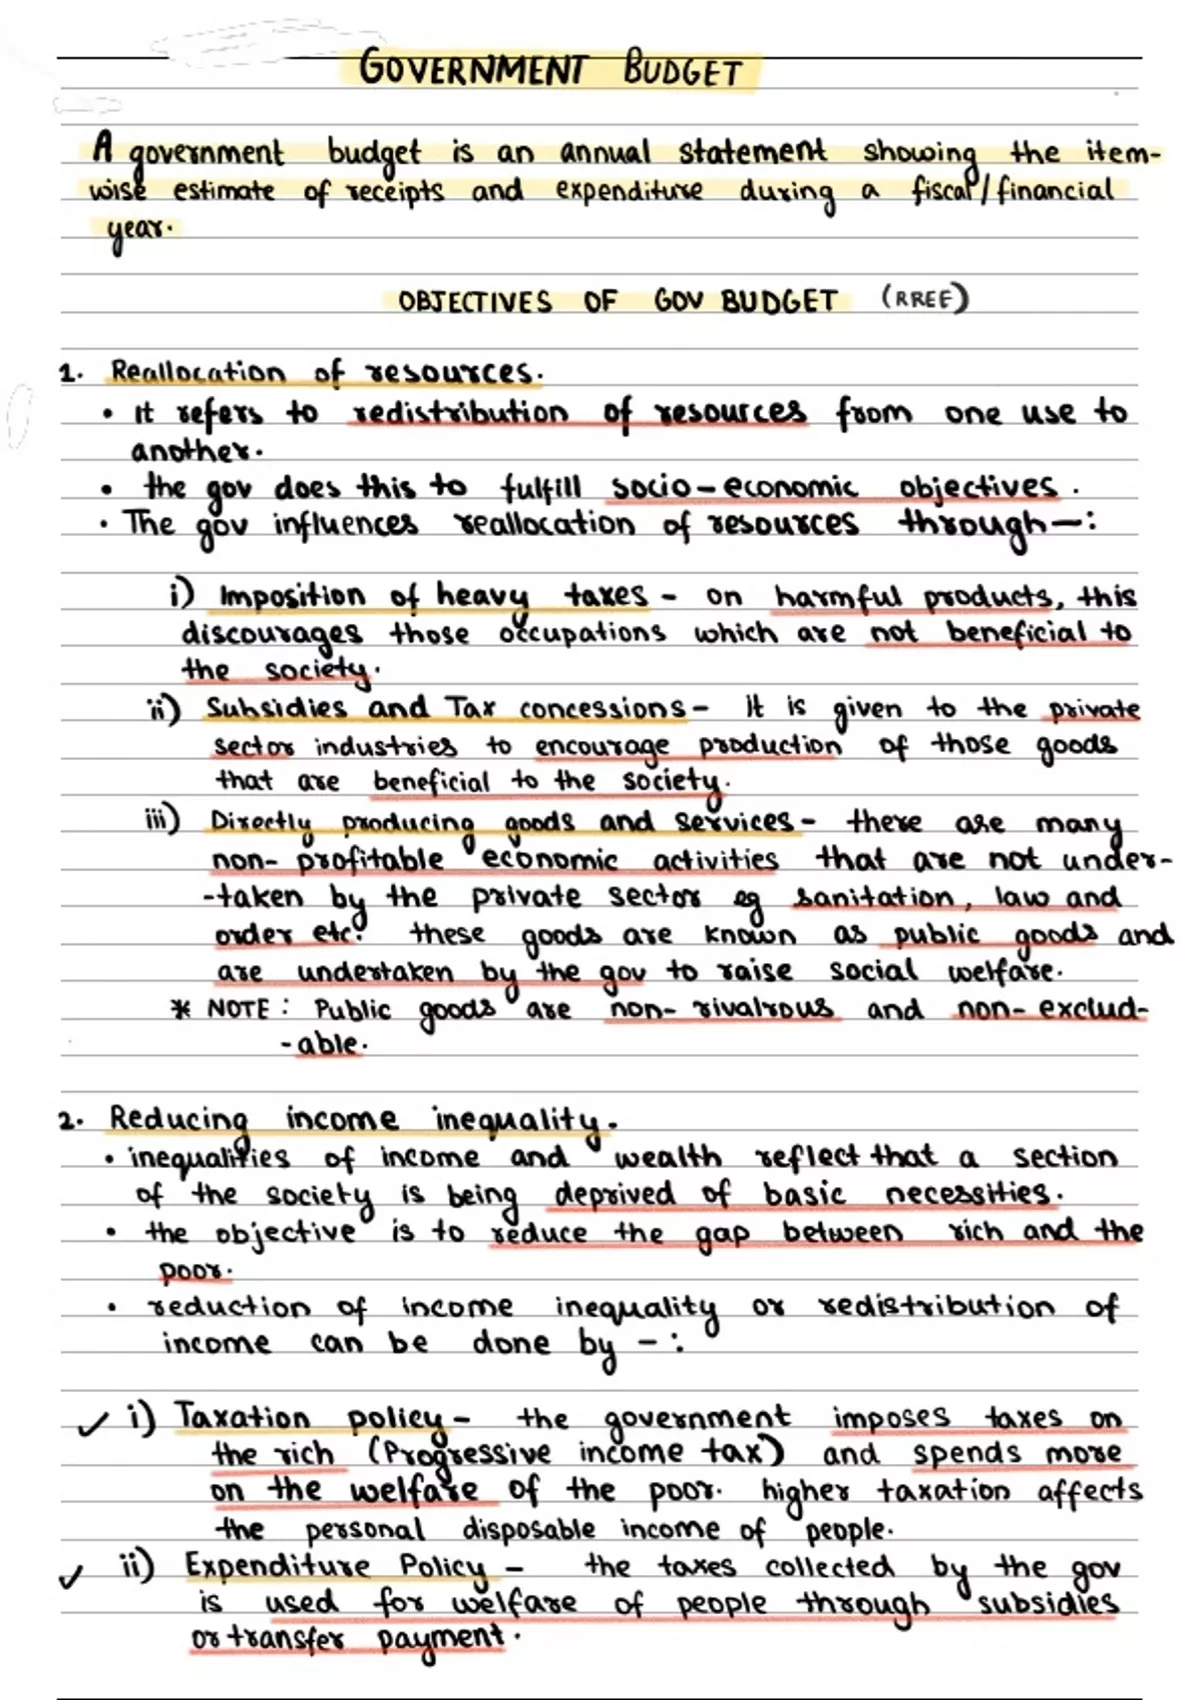 GOVERNMENT BUDGET
A government budget is an annual statement showing the item-
wise estimate of receipts and expenditure during a fiscal/financial
year.
OBJECTIVES OF GOV BUDGET (RREE)
1. Reallocation of resources.
• It refers to redistribution of resources from one use to
another.
• the gov does this to fulfill socio-economic objectives.
• The gov influences reallocation of resources through-:
i) Imposition of heavy taxes - on harmful products, this
discourages those occupations which are not beneficial to
the society.
ii) Subsidies and Tax concessions - It is given to the private
sector industries to encourage production of those goods
that are beneficial to the society.
iii) Directly producing goods and services - there are many
non-profitable economic activities that are not under-
-taken by the private sector eg sanitation, law and
order etc. these goods are known as public goods and
are undertaken by the gov to raise social welfare.
* NOTE: Public goods are non-rivalrous and non-exclud-
-able.
2. Reducing income inequality.
• inequalities of income and wealth reflect that a section
of the society is being deprived of basic necessities.
• the objective is to reduce the gap between rich and the
poor.
• reduction of income inequality or redistribution of
income can be done by -:
✓ i) Taxation policy - the government imposes taxes on
the rich (Progressive income tax) and spends more
on the welfare of the poor. higher taxation affects
the personal disposable income of people.
✓ ii) Expenditure Policy - the taxes collected by the gov
is used for welfare of people through subsidies
or transfer payment.